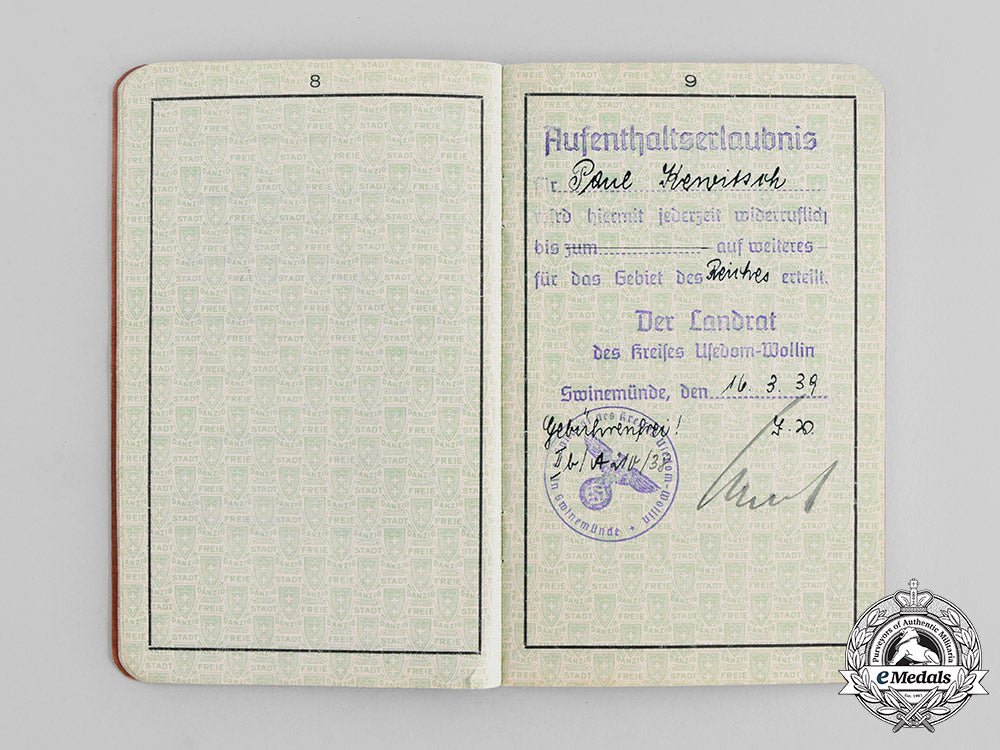 8
9
Aufenthaltserlaubnis
für Paul Kewitsch
wird hiermit jederzeit widerruflich
bis zum auf weiteres
für das Gebiet des Reiches erteilt.
Der Landrat
des Kreises Usedom-Wollin
Swinemünde, den 16. 3. 39
Gebührenfrei!
I.V.
II b/A 210/38
des Kreises Usedom-Wollin
in Swinemünde
FREIE STADT DANZIG
Purveyors of Authentic Militaria
eMedals